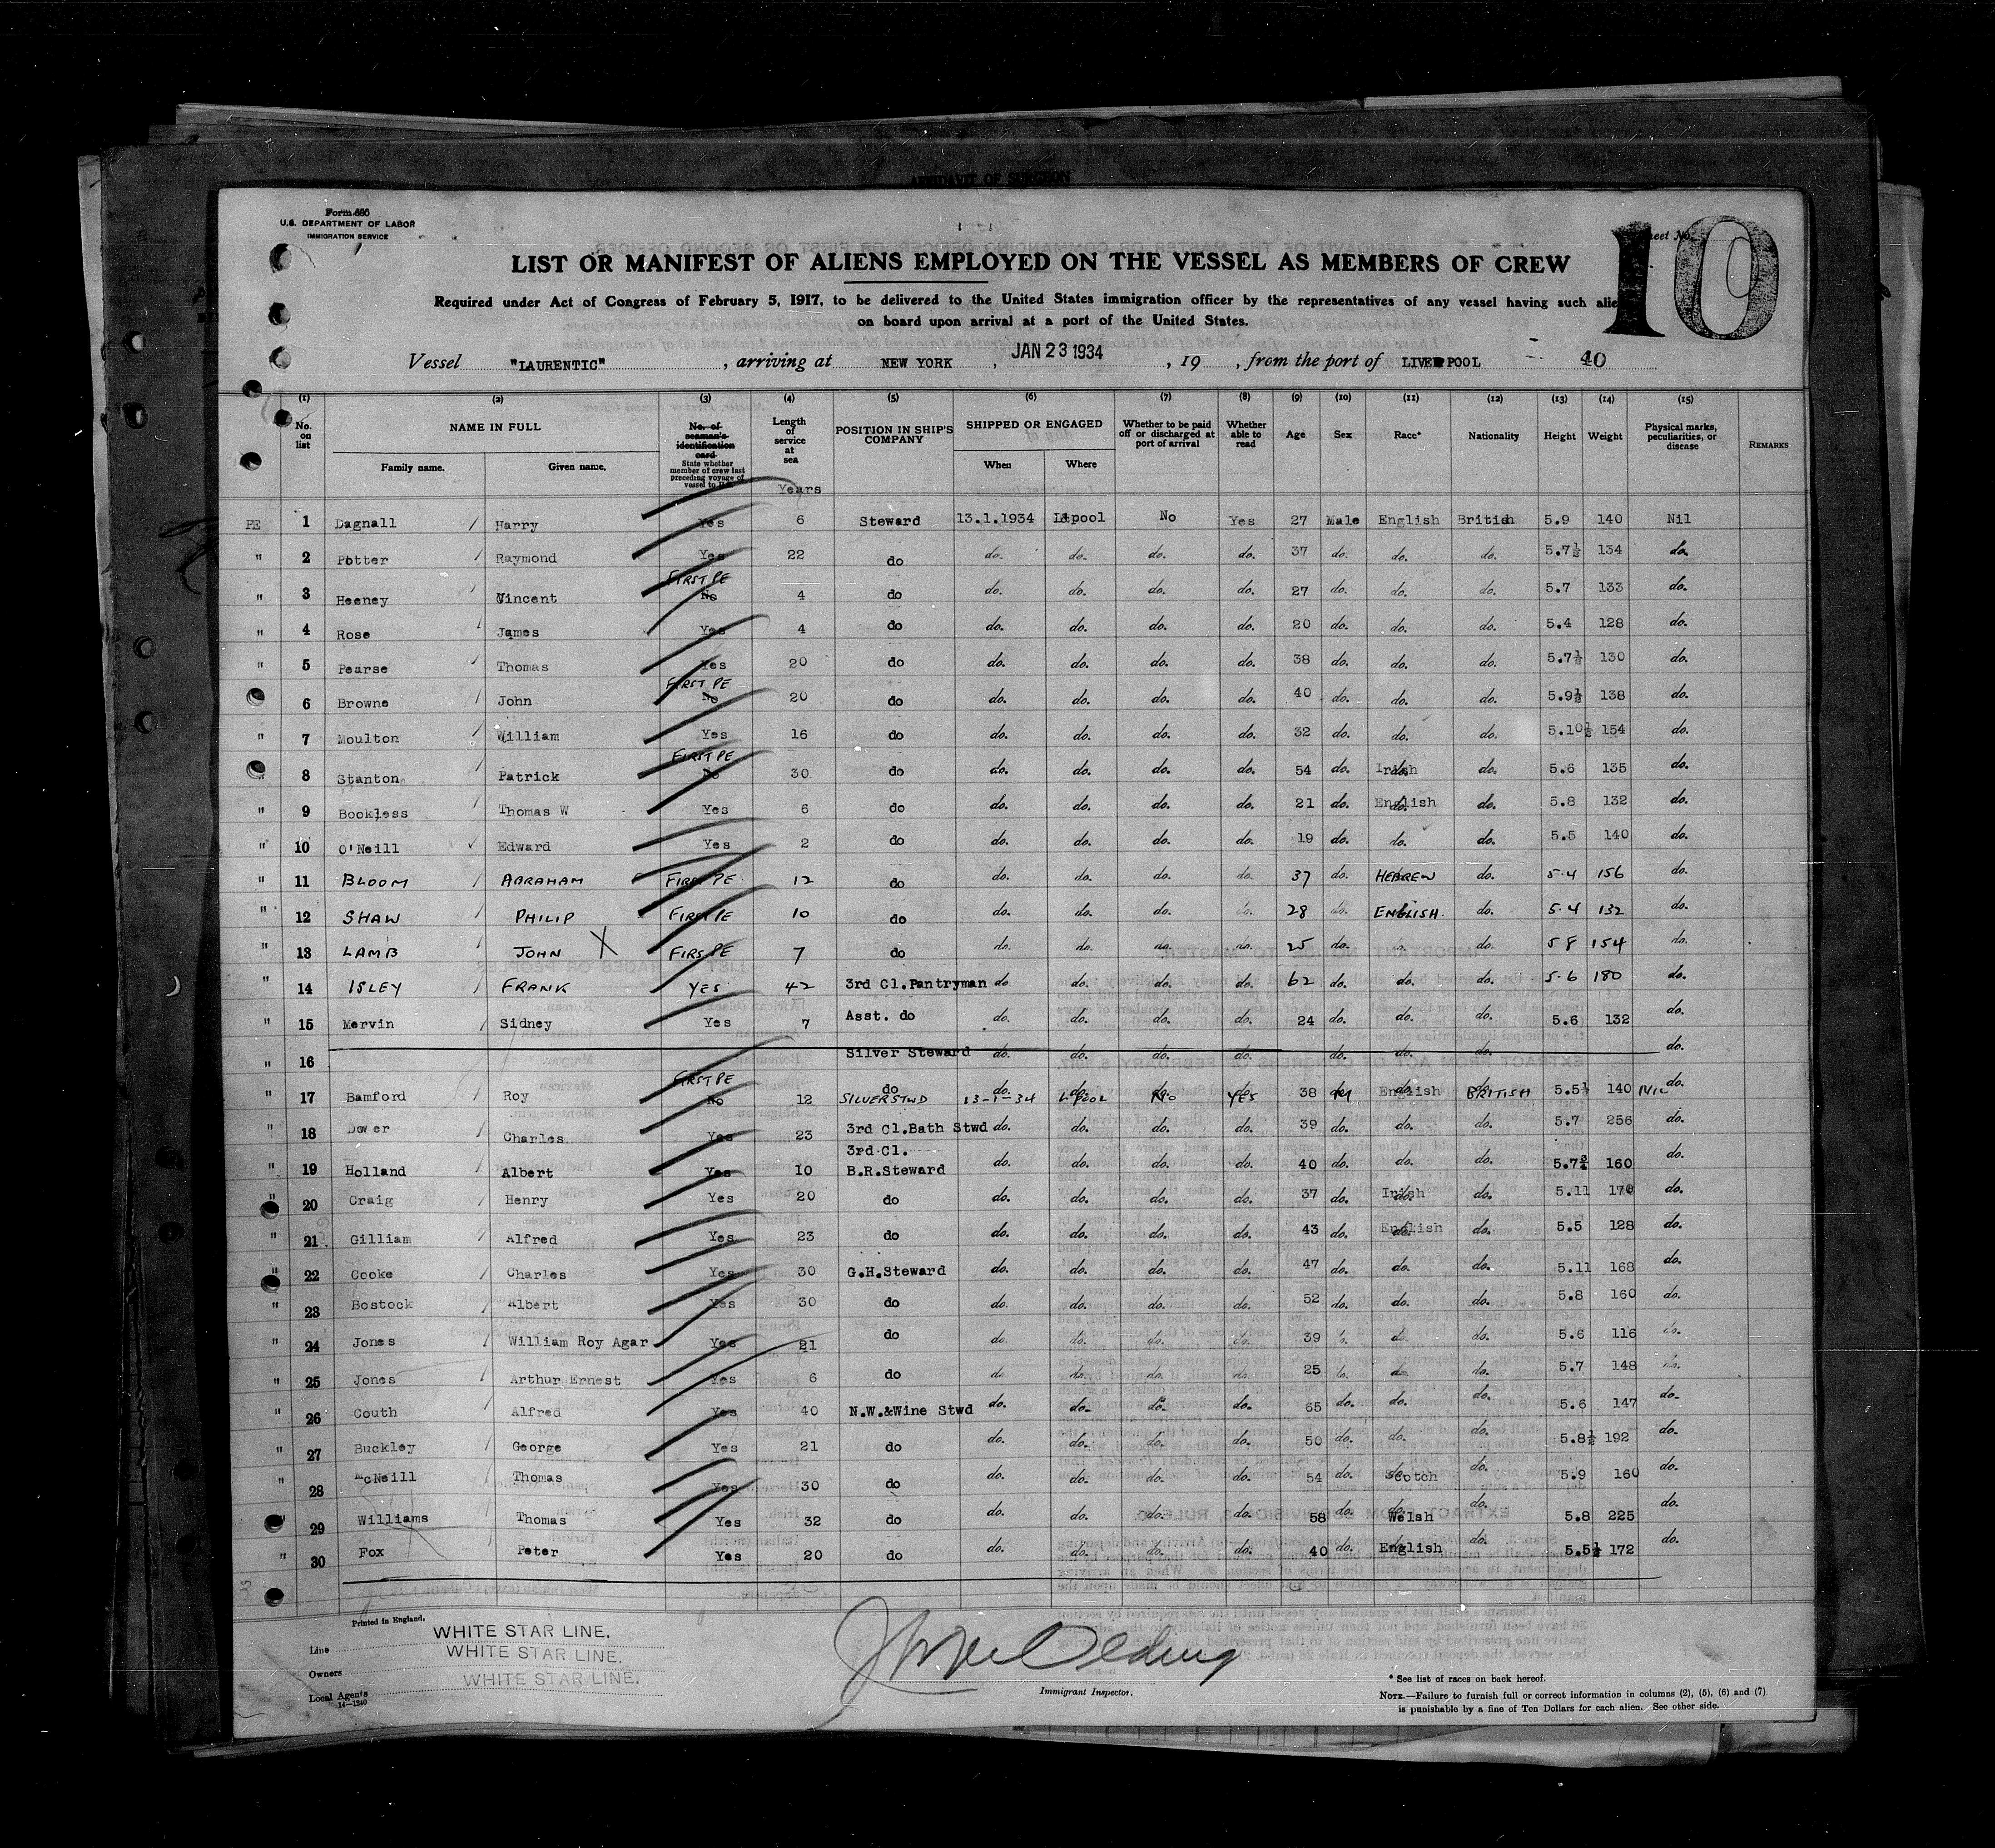 AFFIDAVIT OF SURGEON
Form 680
U.S. DEPARTMENT OF LABOR
IMMIGRATION SERVICE
Sheet No.
10
LIST OR MANIFEST OF ALIENS EMPLOYED ON THE VESSEL AS MEMBERS OF CREW
Required under Act of Congress of February 5, 1917, to be delivered to the United States immigration officer by the representatives of any vessel having such alie
on board upon arrival at a port of the United States.
Vessel "LAURENTIC", arriving at NEW YORK, JAN 23 1934, 19 , from the port of LIVERPOOL 40
(1) (2) (3) (4) (5) (6) (7) (8) (9) (10) (11) (12) (13) (14) (15)
No. on list NAME IN FULL Family name. Given name. No. of seaman's identification card State whether member of crew last preceding voyage of vessel to U.S. Length of service at sea Years POSITION IN SHIP'S COMPANY SHIPPED OR ENGAGED When Where Whether to be paid off or discharged at port of arrival Whether able to read Age Sex Race* Nationality Height Weight Physical marks, peculiarities, or disease REMARKS
PE 1 Dagnall Harry Yes 6 Steward 13.1.1934 L'pool No Yes 27 Male English British 5.9 140 Nil
" 2 Potter Raymond Yes 22 do do. do. do. do. 37 do. do. do. 5.7½ 134 do.
" 3 Heeney Vincent FIRST PE No 4 do do. do. do. do. 27 do. do. do. 5.7 133 do.
" 4 Rose James Yes 4 do do. do. do. do. 20 do. do. do. 5.4 128 do.
" 5 Pearse Thomas Yes 20 do do. do. do. do. 38 do. do. do. 5.7½ 130 do.
6 Browne John FIRST PE No 20 do do. do. do. do. 40 do. do. do. 5.9½ 138 do.
" 7 Moulton William Yes 16 do do. do. do. do. 32 do. do. do. 5.10½ 154 do.
" 8 Stanton Patrick FIRST PE No 30 do do. do. do. do. 54 do. Irish do. 5.6 135 do.
" 9 Bookless Thomas W Yes 6 do do. do. do. do. 21 do. English do. 5.8 132 do.
" 10 O'Neill Edward Yes 2 do do. do. do. do. 19 do. do. do. 5.5 140 do.
" 11 BLOOM ABRAHAM FIRST PE 12 do do. do. do. do. 37 do. HEBREW do. 5.4 156 do.
" 12 SHAW PHILIP FIRST PE 10 do do. do. do. do. 28 do. ENGLISH. do. 5.4 132 do.
" 13 LAMB JOHN X FIRST PE 7 do do. do. do. do. 25 do. do. 5 8 154 do.
" 14 ISLEY FRANK YES 42 3rd Cl.Pantryman do. do. do. do. 62 do. do. do. 5.6 180 do.
" 15 Mervin Sidney Yes 7 Asst. do do. do. do. do. 24 do. do. do. 5.6 132 do.
" 16 Silver Steward do. do. do. do. do. do. do. do.
" 17 Bamford Roy FIRST PE No 12 do SILVER STWD do. 13-1-34 do. L'POOL do. No do. YES 38 do. M English do. BRITISH 5.5½ 140 NIL do.
" 18 Dower Charles Yes 23 3rd Cl.Bath Stwd do. do. do. do. 39 do. do. do. 5.7 256 do.
" 19 Holland Albert Yes 10 3rd Cl. B.R.Steward do. do. do. do. 40 do. do. do. 5.7¾ 160 do.
" 20 Craig Henry Yes 20 do do. do. do. do. 37 do. Irish do. 5.11 170 do.
" 21 Gilliam Alfred Yes 23 do do. do. do. do. 43 do. English do. 5.5 128 do.
" 22 Cooke Charles Yes 30 G.H.Steward do. do. do. do. 47 do. do. do. 5.11 168 do.
" 23 Bostock Albert Yes 30 do do. do. do. do. 52 do. do. do. 5.8 160 do.
" 24 Jones William Roy Agar Yes 21 do do. do. do. do. 39 do. do. do. 5.6 116 do.
" 25 Jones Arthur Ernest Yes 6 do do. do. do. do. 25 do. do. do. 5.7 148 do.
" 26 Couth Alfred Yes 40 N.W.&Wine Stwd do. do. do. do. 65 do. do. do. 5.6 147 do.
" 27 Buckley George Yes 21 do do. do. do. do. 50 do. do. do. 5.8½ 192 do.
" 28 McNeill Thomas Yes 30 do do. do. do. do. 54 do. Scotch do. 5.9 160 do.
" 29 Williams Thomas Yes 32 do do. do. do. do. 58 do. Welsh do. 5.8 225 do.
" 30 Fox Peter Yes 20 do do. do. do. do. 40 do. English do. 5.5½ 172 do.
Printed in England.
Line WHITE STAR LINE.
Owners WHITE STAR LINE.
Local Agents WHITE STAR LINE.
14—1240
Immigrant Inspector.
* See list of races on back hereof.
NOTE.—Failure to furnish full or correct information in columns (2), (5), (6) and (7)
is punishable by a fine of Ten Dollars for each alien. See other side.